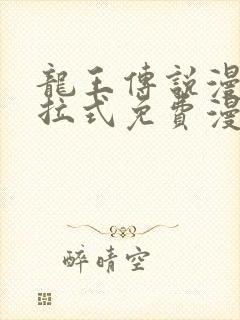 龍王傳説漫
拉式免費漫
醉晴空